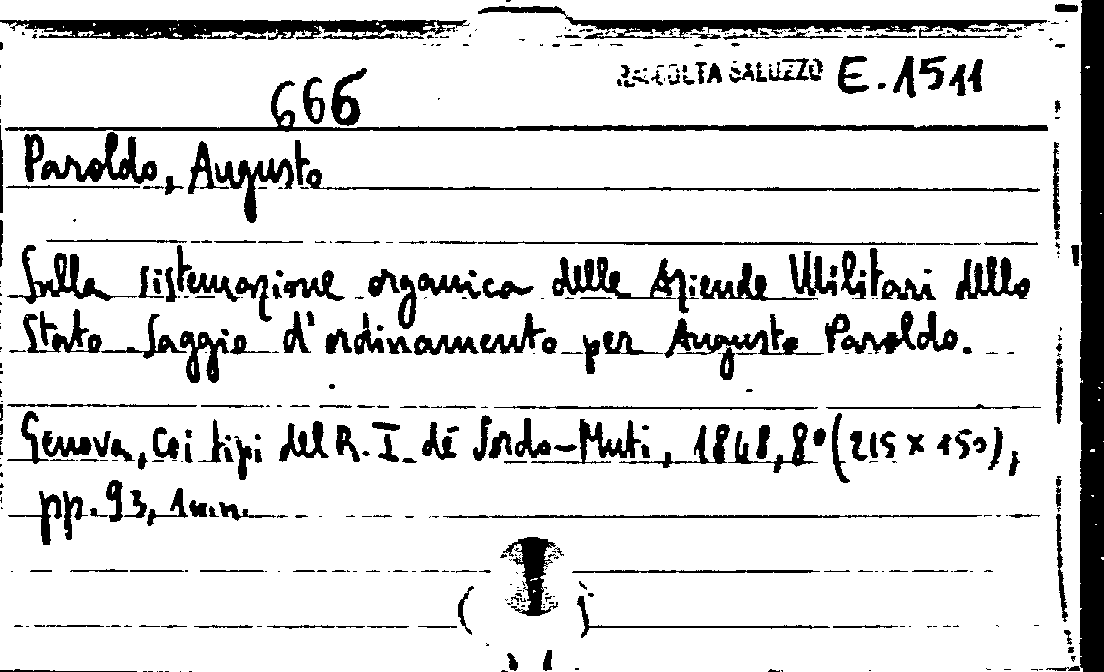 RACCOLTA SALUZZO E. 1511
666
Paroldo, Augusto
Sulla sistemazione organica delle Aziende Militari dello
Stato. Saggio d'ordinamento per Augusto Paroldo.
Genova, Coi tipi del R. I. dé Sordo-Muti, 1848, 8° (215 x 150),
pp. 93, 1 n.n.